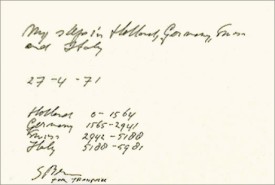 My slips in Holland, Germany,
and Italy
27-4-71
Holland 0-1564
Germany 1565-2941
2942-5188
Italy 5188-5981